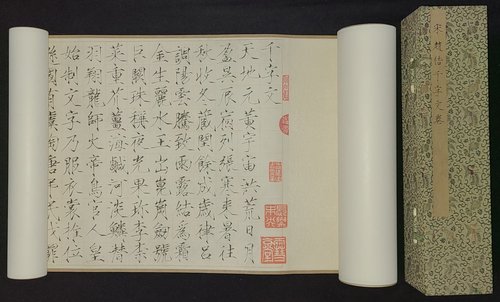 千字文
天地元黃宇宙洪荒日月
盈昃辰宿列張寒來暑往
秋收冬藏閏餘成歲律呂
調陽雲騰致雨露結為霜
金生麗水玉出崑崗劍號
巨闕珠稱夜光果珍李柰
菜重芥薑海鹹河淡鱗潛
羽翔龍師火帝鳥官人皇
始制文字乃服衣裳推位
遜國有虞陶唐弔民伐罪
宋趙佶千字文卷